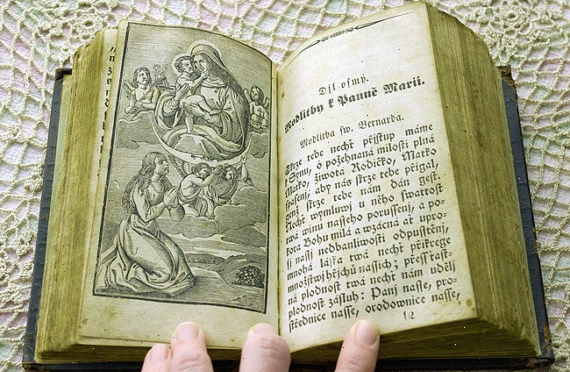 Djl osmý.
Modlitby k Panně Marii.
Modlitba sw. Bernarda.
Skrze tebe nechť přjstup máme
k Synu, ó požehnaná milosti plná
Matko, života Rodičko, Matko
spasenj, aby nás skrze tebe přigal,
genž skrze tebe nám dán gest.
Nechť wymluwj u něho swatost
twá winu nasseho porussenj, a po-
kora Bohu milá a wzácná ať upro-
sj nassj nedbanliwosti odpusstěnj,
mnohá láska twá nechť přikrege
množstwj hřjchů nassich; přesstast-
ná plodnost twá nechť nám udělj
plodnost zásluh: Panj nasse, pro-
střednice nasse, orodownice nasse,
12